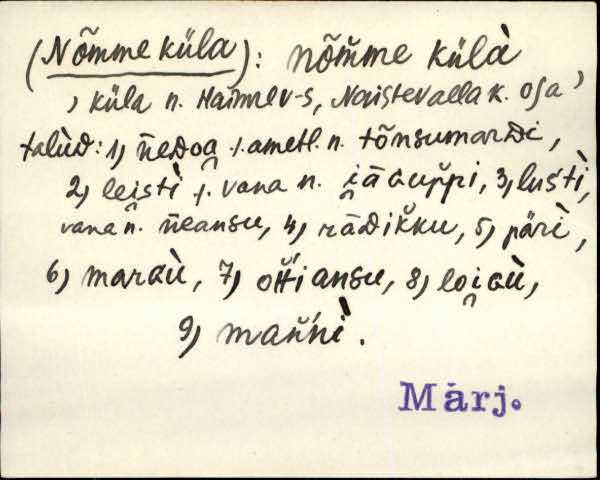 (Nõmme küla): nõm̆me külà
› küla n. Haimrev-s, Naistevalla k. osa ›
talùᴅ: 1) n̆eᴅoa̯ /. ametl. n. tõnsumarᴅi,
2) leistì /. vana n. i̯āɢup̆pi, 3) lus'tì,
vana n. n̆eansu, 4) rāᴅik̆ku, 5) pärì,
6) marɢù, 7) ot̆'t'iansu, 8) loi̯ɢù,
9) man̆'nì.
Märj.